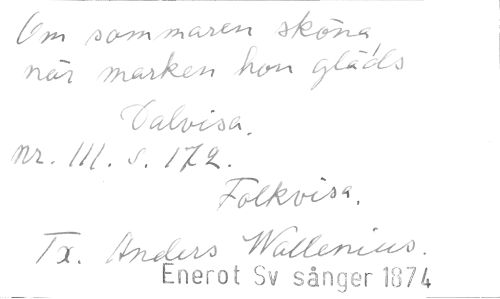 Om sommaren sköna,
när marken hon gläds
Valvisa.
nr. 111. s. 172.
Folkvisa.
Tx. Anders Wallenius.
Enerot Sv sånger 1874